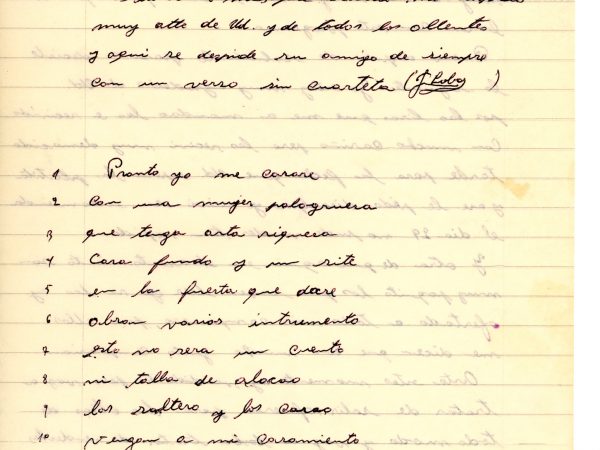 muy atto de Ud. y de todos los ollentes
y aqui se despide su amigo de siempre
con un verso sin cuarteta (J Lobos)
1 Pronto yo me casare
2 con una mujer palogruesa
3 que tenga arta riquesa
4 Casa fundo y un
5 en la fiesta que dare
6 abran varios intrumento
7 esto no sera un cuento
8 ni talla de alocao
9 los soltero y los casao
10 vengan a mi casamiento